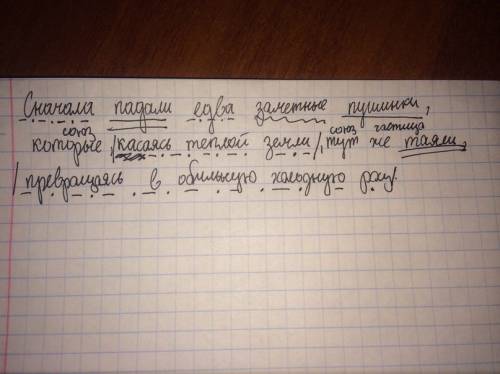 Сначала падали едва заметные пушинки,
союз союз частица
которые, /касаясь теплой земли/, тут же таяли,
/превращаясь в обильную холодную росу/.